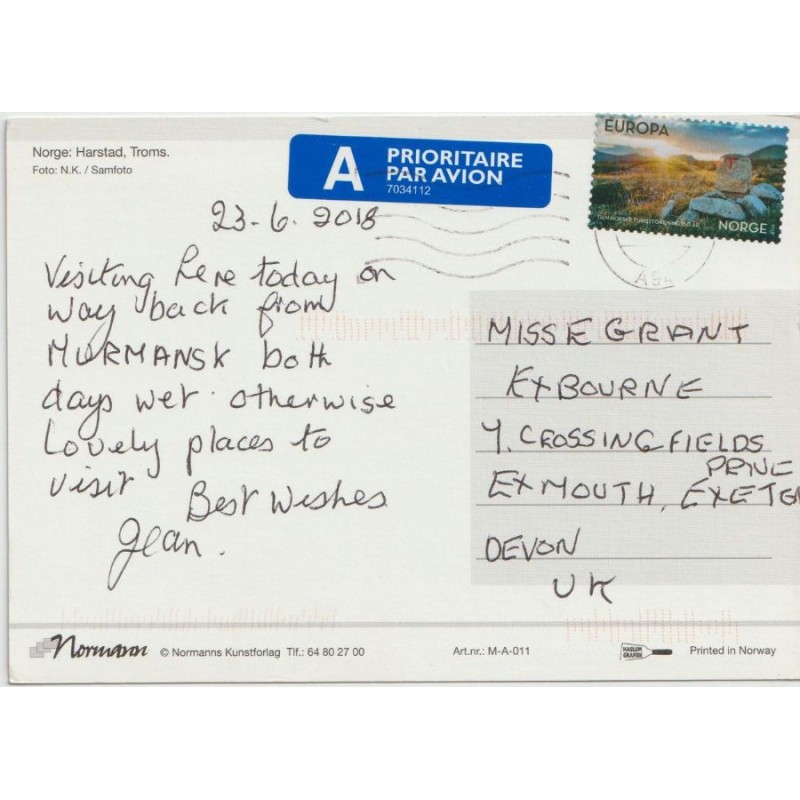 Norge: Harstad, Troms.
Foto: N.K. / Samfoto
A PRIORITAIRE
PAR AVION
7034112
EUROPA
NORGE
A94
23-6. 2018
Visiting here today on
way back from
MURMANSK both
days wet. otherwise
Lovely places to
visit
Best Wishes
Jean.
MISS E GRANT
EXBOURNE
4. CROSSINGFIELDS
EXMOUTH, EXETER
DEVON
UK
Normann © Normanns Kunstforlag Tlf.: 64 80 27 00
Art.nr.: M-A-011
HASLUM
GRAFISK
Printed in Norway